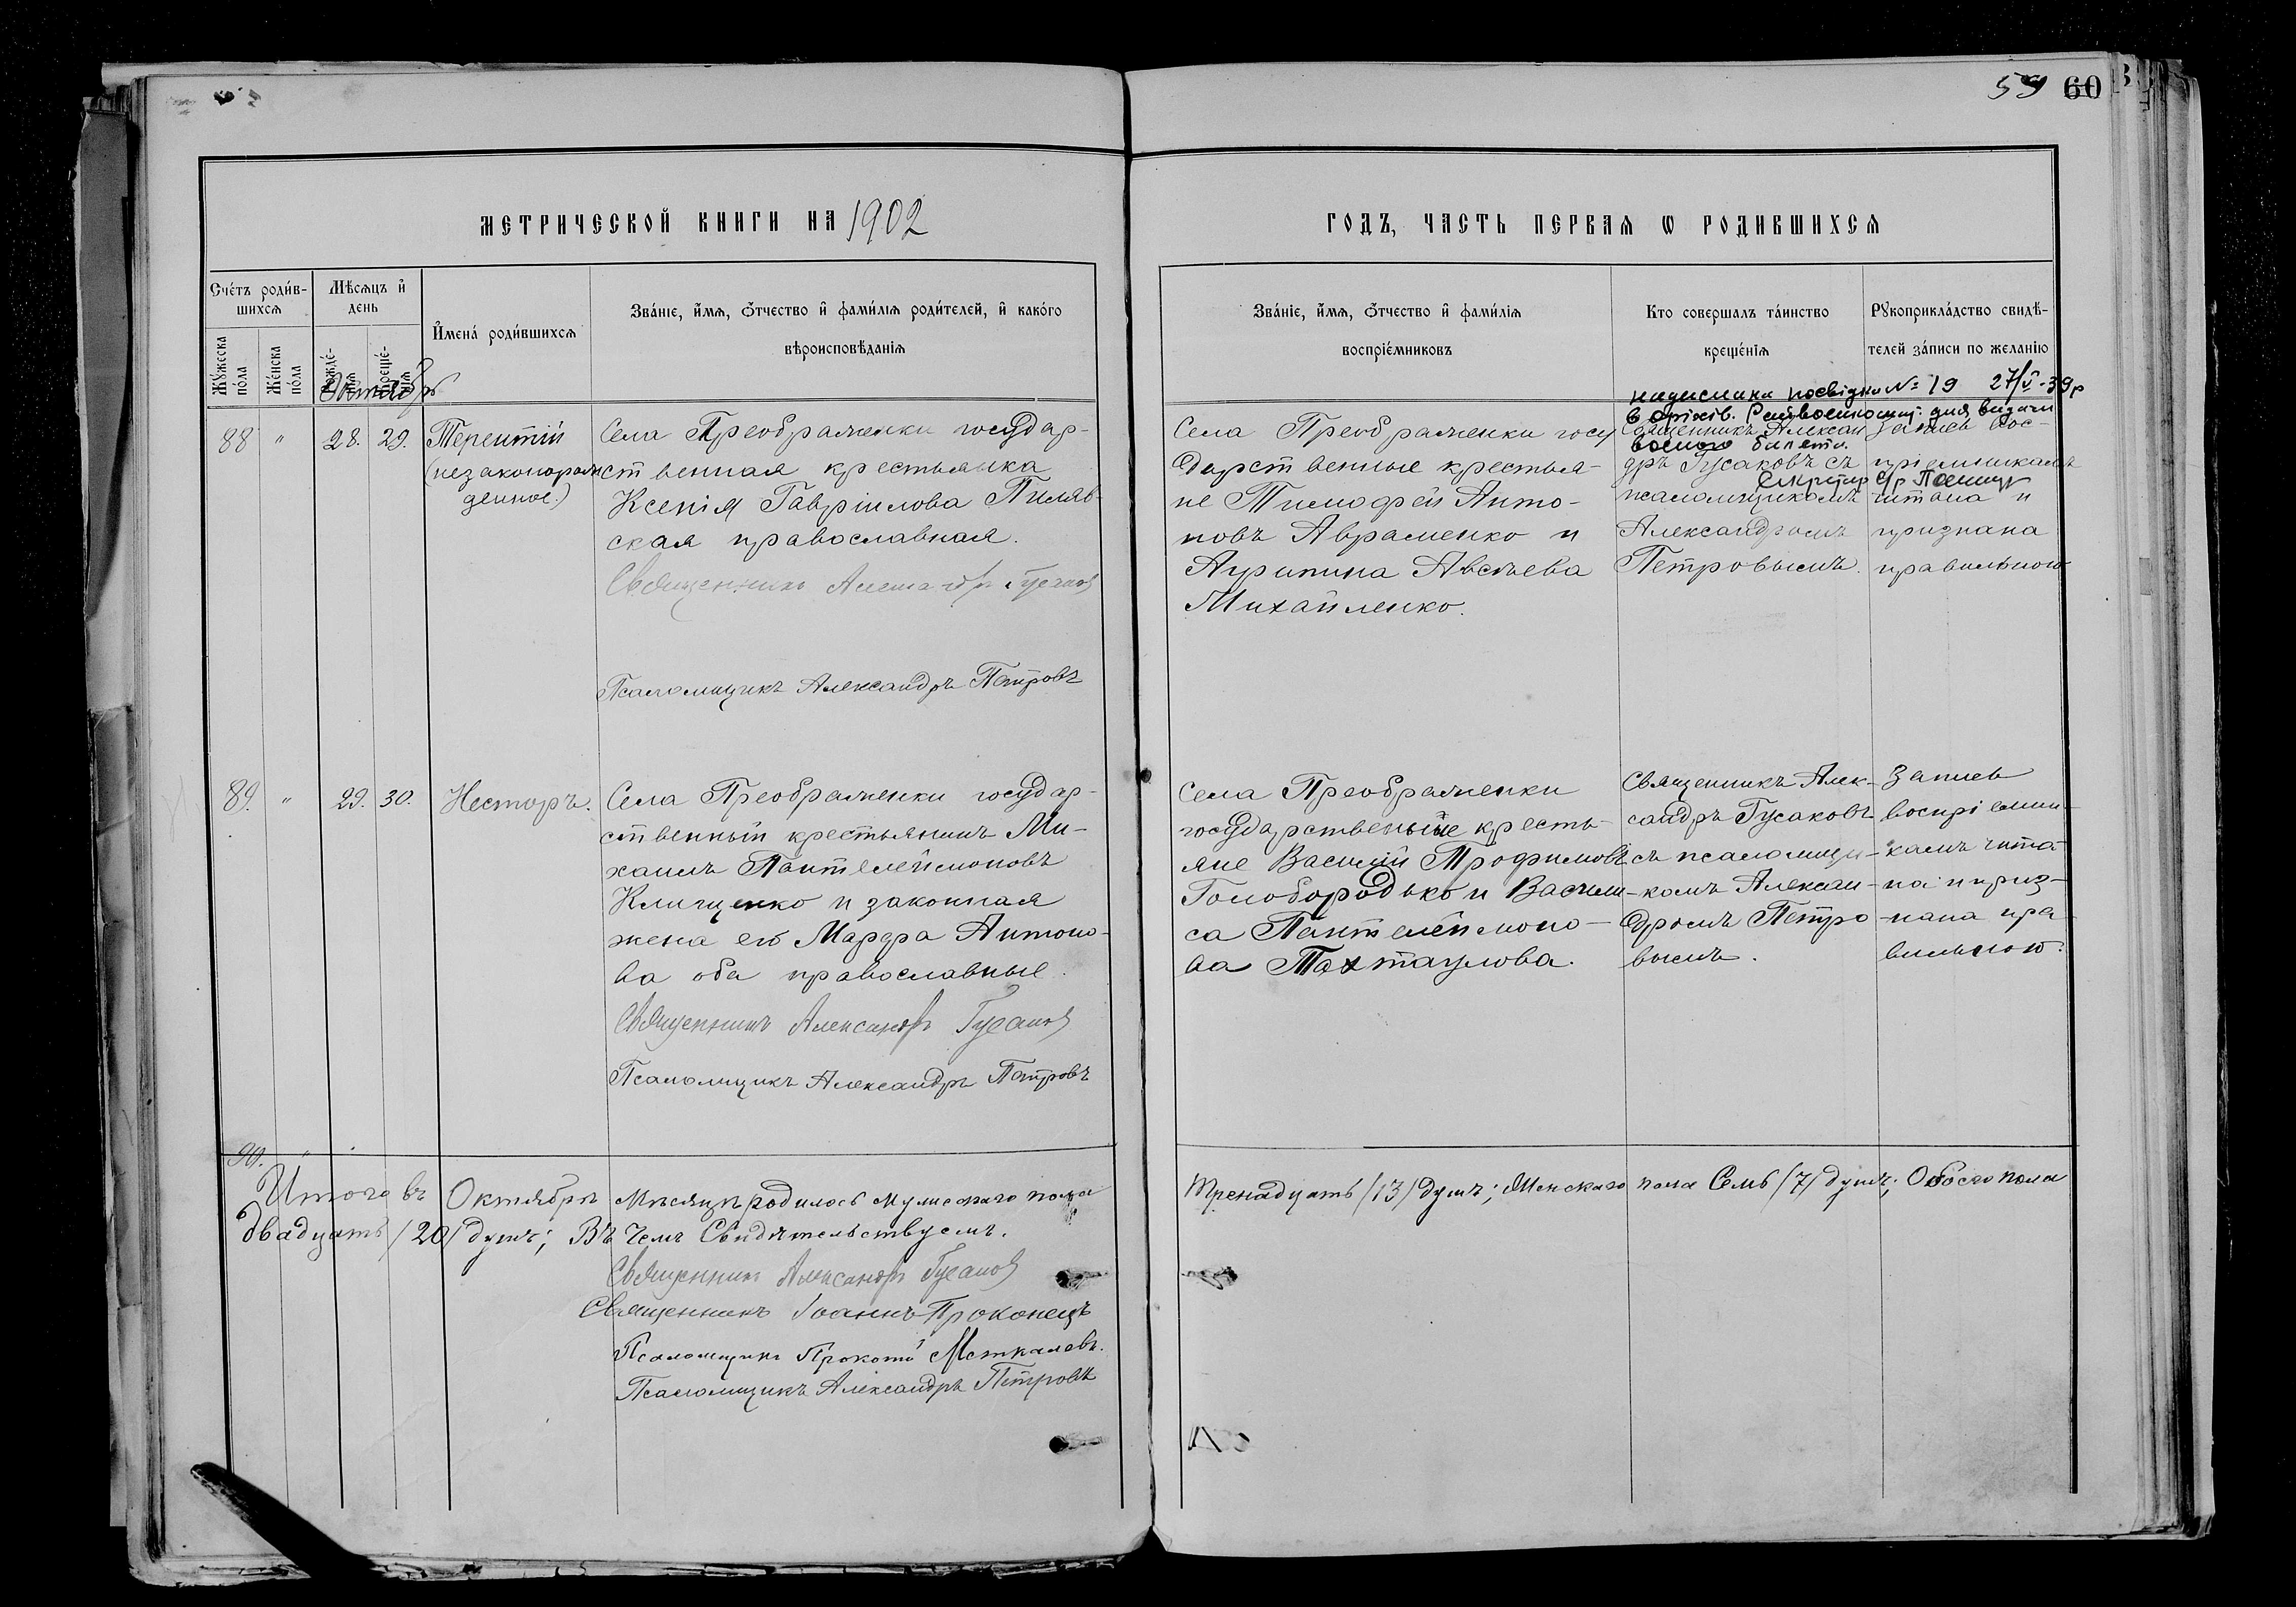 59 60
МЕТРИЧЕСКОЙ КНИГИ НА 1902
ГОДЪ, ЧАСТЬ ПЕРВАЯ Ѡ РОДИВШИХСЯ
Счетъ родив-
шихся
Мужеска
пола
Женска
пола
Мѣсяцъ и
день
Рожде-
нія
Креще-
нія
Имена родившихся
Званіе, имя, отчество и фамилія родителей, и какого
вѣроисповѣданія
Званіе, имя, отчество и фамилія
воспріемниковъ
Кто совершалъ таинство
крещенія
Рукоприкладство свидѣ-
телей записи по желанію
Октябрь
88 " 28. 29.
Терентій
(незаконорож
денное.)
Села Преображенки государ-
ственная крестьянка
Ксенія Гавріилова Пиляв-
ская православная.
Священникъ Александръ Гусаковъ
Псаломщикъ Александръ Петровъ
Села Преображенки госу
дарственные крестья-
не Тимофей Анто-
новъ Авраменко и
Агрипина Авсѣева
Михайленко.
№ 19 27/V-39р
в архів. для видачи
военного билета.
Секретар с/р
Священникъ Алексан
дръ Гусаковъ съ
псаломщикомъ
Александромъ
Петровымъ.
Запись вос-
пріемникамъ
читана и
признана
правильною
89. " 29. 30.
Несторъ.
Села Преображенки государ-
ственный крестьянинъ Ми-
хаилъ Пантелеймоновъ
Клищенко и законная
жена его Марфа Антоно-
ва оба православные.
Священникъ Александръ Гусаковъ
Псаломщикъ Александръ Петровъ
Села Преображенки
государственные кресть-
яне Василій Трофимовъ
Голобородько и Васили-
са Пантелеймоно-
ва Тахтаулова.
Священникъ Алек-
сандръ Гусаковъ
съ псаломщи-
комъ Алексан-
дромъ Петро
вымъ.
Запись
воспріемни-
камъ чита-
на и приз-
нана пра-
вильною.
90. "
Итого въ Октябрѣ мѣсяцѣ родилось мужескаго пола Тренадцать /13/ душъ; Женскаго пола Семь /7/ душъ; Обоего пола
двадцать /20/ душъ; Въ чемъ Свидѣтельствуемъ.
Священникъ Александръ Гусаковъ
Священникъ Іоаннъ Прокопецъ
Псаломщикъ Прокопій Меткалевъ.
Псаломщикъ Александръ Петровъ